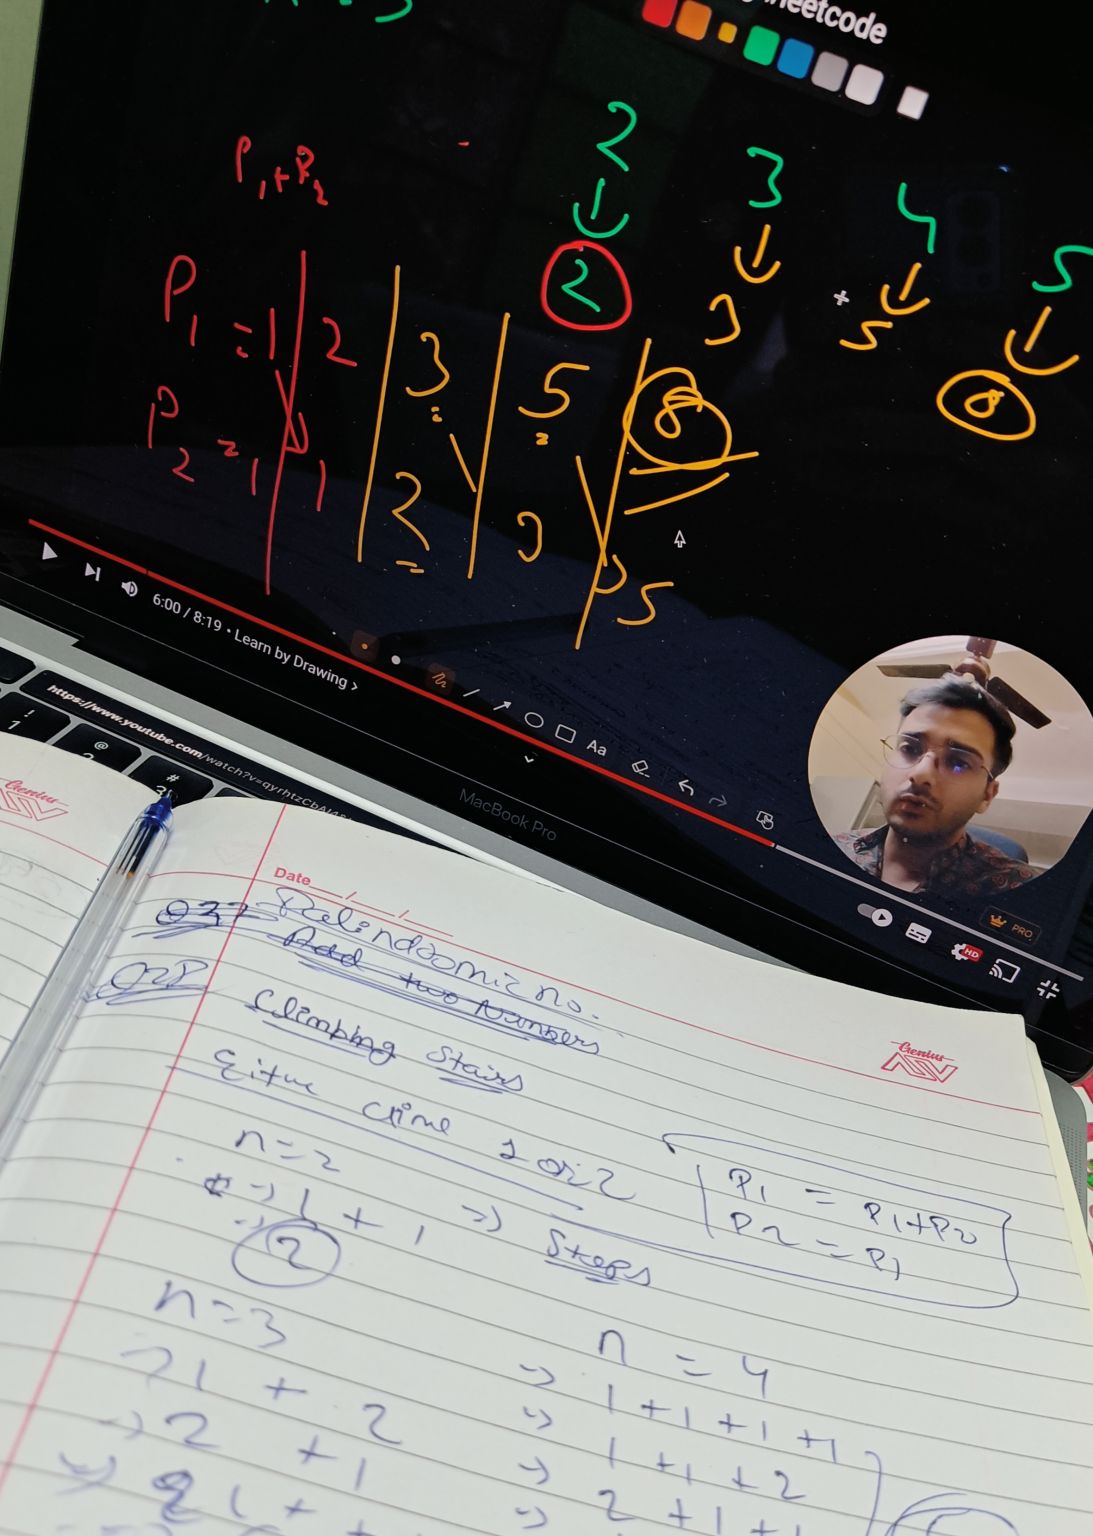 leetcode
P1+P2
2 3 4 5
2 3 5 8
P1 = 1 2 3 5 8
P2 = 1 1 2 3 5
6:00 / 8:19 • Learn by Drawing >
Aa
PRO
HD
https://www.youtube.com/watch?v=qyrhtzCbA
MacBook Pro
! 1
@ 2
# 3
Genius
Date
Palindromic no.
Add two Numbers
Q28
Climbing Stairs
Genius
climb 1 or 2
n=2
P1 = P1+P2
P2 = P1
→ 1 + 1 ⇒ Steps
→ 2
n=3
n = 4
→ 1 + 2
→ 1 + 1 + 1 + 1
→ 2 + 1
→ 1 + 1 + 2
→ 2 + 1 + 1